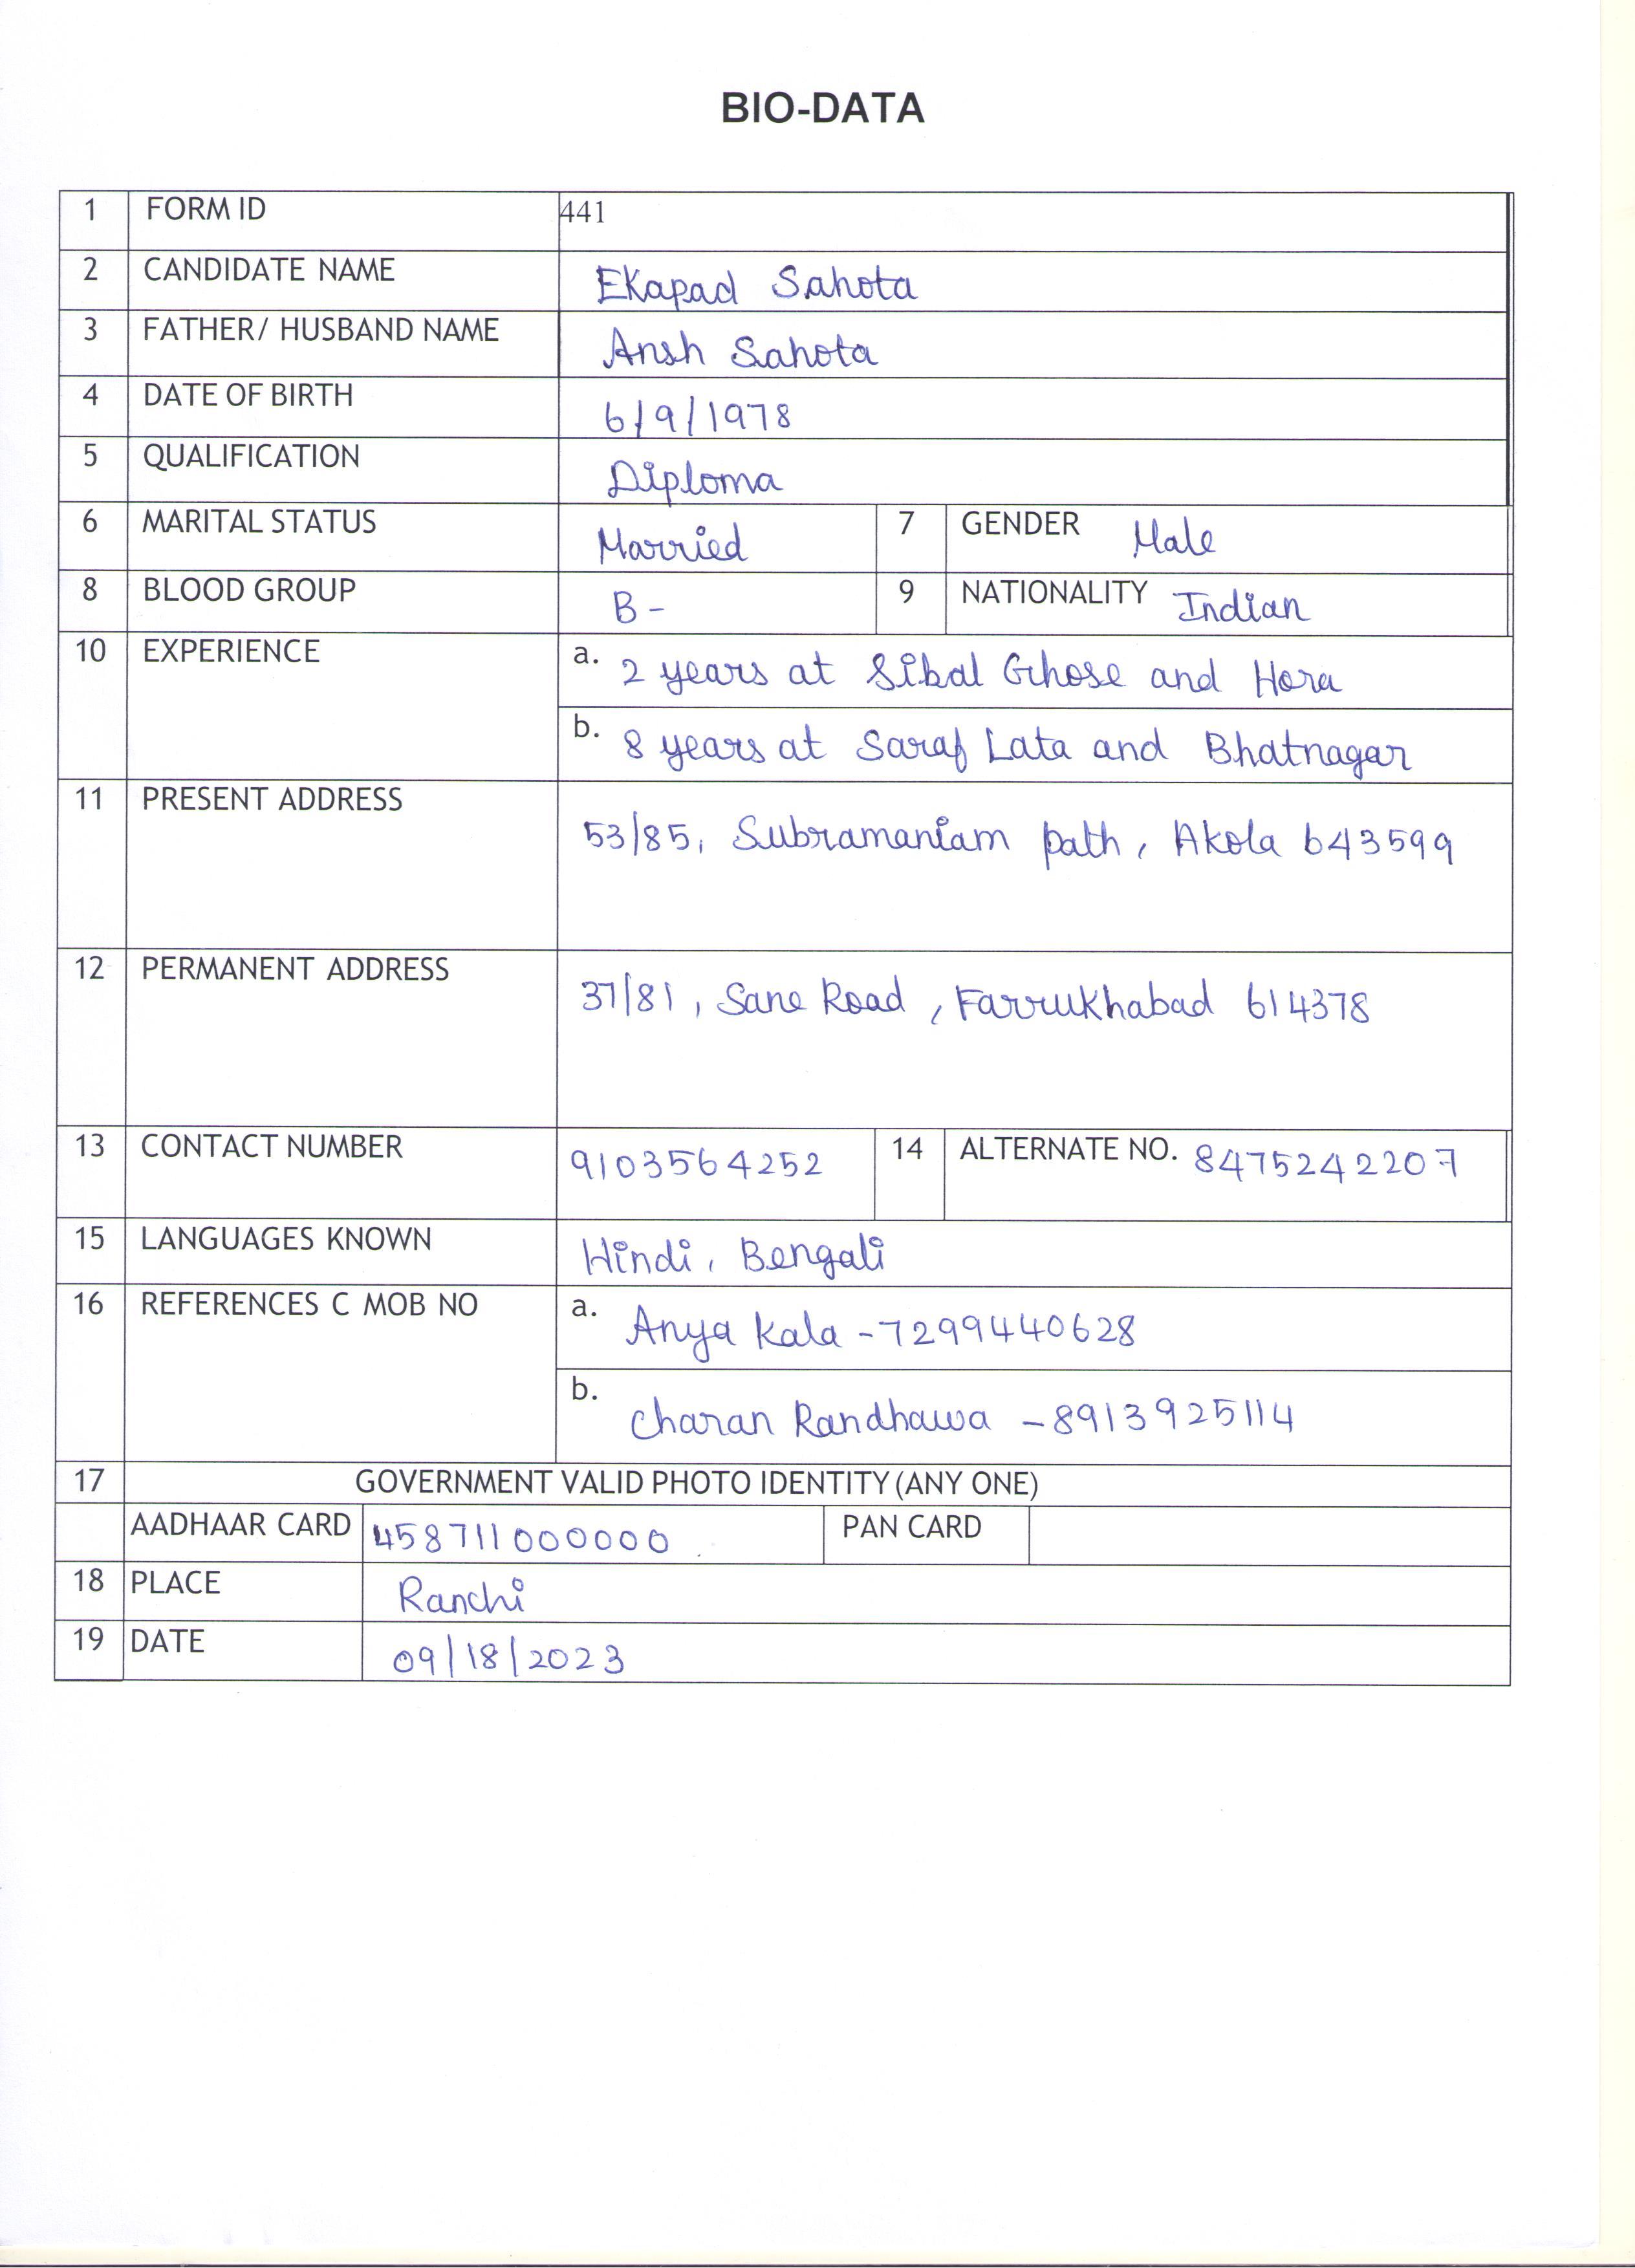 BIO-DATA
1 FORM ID 441
2 CANDIDATE NAME Ekapad Sahota
3 FATHER/ HUSBAND NAME Ansh Sahota
4 DATE OF BIRTH 6/9/1978
5 QUALIFICATION Diploma
6 MARITAL STATUS Married 7 GENDER Male
8 BLOOD GROUP B- 9 NATIONALITY Indian
10 EXPERIENCE a. 2 years at Sibal Ghose and Hora
b. 8 years at Saraf Lata and Bhatnagar
11 PRESENT ADDRESS 53/85, Subramaniam path, Akola 643599
12 PERMANENT ADDRESS 37/81, Sane Road, Farrukhabad 614378
13 CONTACT NUMBER 9103564252 14 ALTERNATE NO. 8475242207
15 LANGUAGES KNOWN Hindi, Bengali
16 REFERENCES C MOB NO a. Anya Kala -7299440628
b. Charan Randhawa -8913925114
17 GOVERNMENT VALID PHOTO IDENTITY (ANY ONE)
AADHAAR CARD 458711000000 PAN CARD
18 PLACE Ranchi
19 DATE 09/18/2023